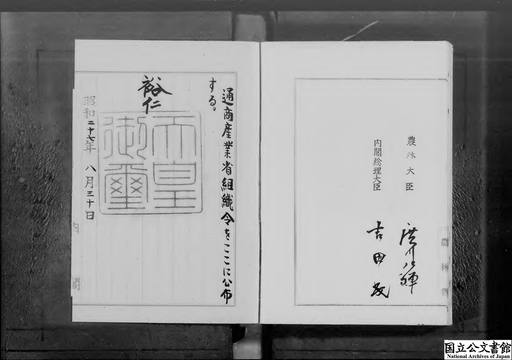 農林大臣
廣川弘禅
内閣総理大臣
吉田茂
通商産業省組織令をここに公布
する。
裕仁
天皇
御璽
昭和二十七年 八月三十日
内閣
国立公文書館
National Archives of Japan